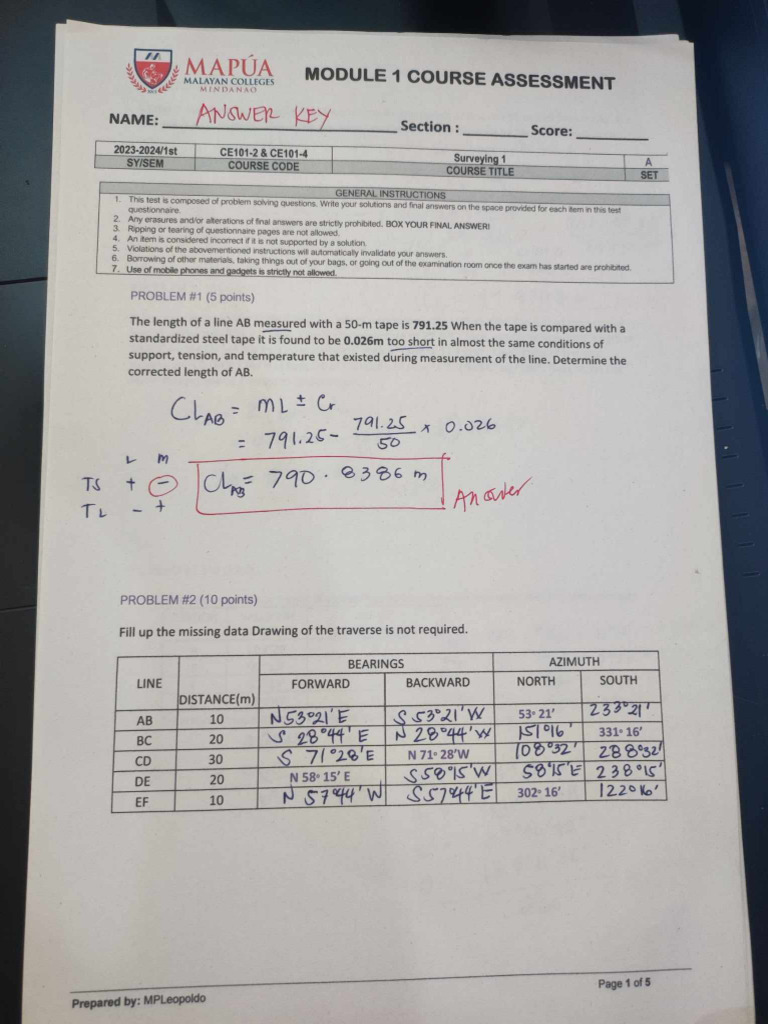 MAPÚA
MALAYAN COLLEGES
MINDANAO
MODULE 1 COURSE ASSESSMENT
NAME: ANSWER KEY Section : Score:
2023-2024/1st CE101-2 & CE101-4 Surveying 1 A
SY/SEM COURSE CODE COURSE TITLE SET
GENERAL INSTRUCTIONS
1. This test is composed of problem solving questions. Write your solutions and final answers on the space provided for each item in this test
questionnaire.
2. Any erasures and/or alterations of final answers are strictly prohibited. BOX YOUR FINAL ANSWER!
3. Ripping or tearing of questionnaire pages are not allowed.
4. An item is considered incorrect if it is not supported by a solution.
5. Violations of the abovementioned instructions will automatically invalidate your answers.
6. Borrowing of other materials, taking things out of your bags, or going out of the examination room once the exam has started are prohibited.
7. Use of mobile phones and gadgets is strictly not allowed.
PROBLEM #1 (5 points)
The length of a line AB measured with a 50-m tape is 791.25 When the tape is compared with a
standardized steel tape it is found to be 0.026m too short in almost the same conditions of
support, tension, and temperature that existed during measurement of the line. Determine the
corrected length of AB.
CL AB = ML ± Cr
= 791.25 - 791.25/50 x 0.026
L M
TS + - CL AB = 790.8386 m
TL - + Answer
PROBLEM #2 (10 points)
Fill up the missing data Drawing of the traverse is not required.
BEARINGS AZIMUTH
LINE DISTANCE(m) FORWARD BACKWARD NORTH SOUTH
AB 10 N53°21'E S 53°21'W 53◦ 21' 233°21'
BC 20 S 28°44'E N 28°44'W 151°16' 331◦ 16'
CD 30 S 71°28'E N 71◦ 28'W 108°32' 288°32'
DE 20 N 58◦ 15' E S58°15'W 58°15'E 238°15'
EF 10 N 57°44'W S57°44'E 302◦ 16' 122°16'
Page 1 of 5
Prepared by: MPLeopoldo